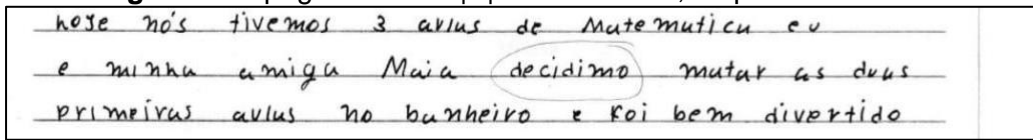 hoje nós tivemos 3 aulas de Matematica eu
e minha amiga Maia decidimo matar as duas
primeiras aulas no banheiro e foi bem divertido